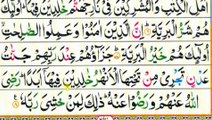 اَهْلِ الْكِتٰبِ وَالْمُشْرِكِيْنَ فِيْ نَارِ جَهَنَّمَ خٰلِدِيْنَ فِيْهَا ؕ اُولٰٓئِكَ
هُمْ شَرُّ الْبَرِيَّةِ ؕ اِنَّ الَّذِيْنَ اٰمَنُوْا وَعَمِلُوا الصّٰلِحٰتِ ۙ
اُولٰٓئِكَ هُمْ خَيْرُ الْبَرِيَّةِ ؕ جَزَآؤُهُمْ عِنْدَ رَبِّهِمْ جَنّٰتُ
عَدْنٍ تَجْرِيْ مِنْ تَحْتِهَا الْاَنْهٰرُ خٰلِدِيْنَ فِيْهَاۤ اَبَدًا ؕ رَضِيَ
اللّٰهُ عَنْهُمْ وَرَضُوْا عَنْهُ ؕ ذٰلِكَ لِمَنْ خَشِيَ رَبَّهٗ